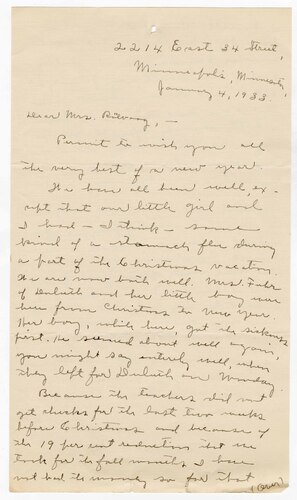 2214 East 34 Street,
Minneapolis, Minnesota,
January 4, 1933.
Dear Mrs. Rölvaag, —
Permit to wish you all
the very best of a new year.
We have all been well, ex-
cept that our little girl and
I had — I think — some
kind of a stomach flu during
a part of the Christmas vacation.
We are now both well. Mrs.
of Duluth and her little boy were
here from Christmas to New Year.
Her boy, while here, got the sickness
first. He seemed about well again,
you might say entirely well, when
they left for Duluth on Monday.
Because the teachers did not
get checks for the last two weeks
before Christmas and because of
the 19 per cent reduction that we
took for the fall months, I have
not had the money so far that
(Over)